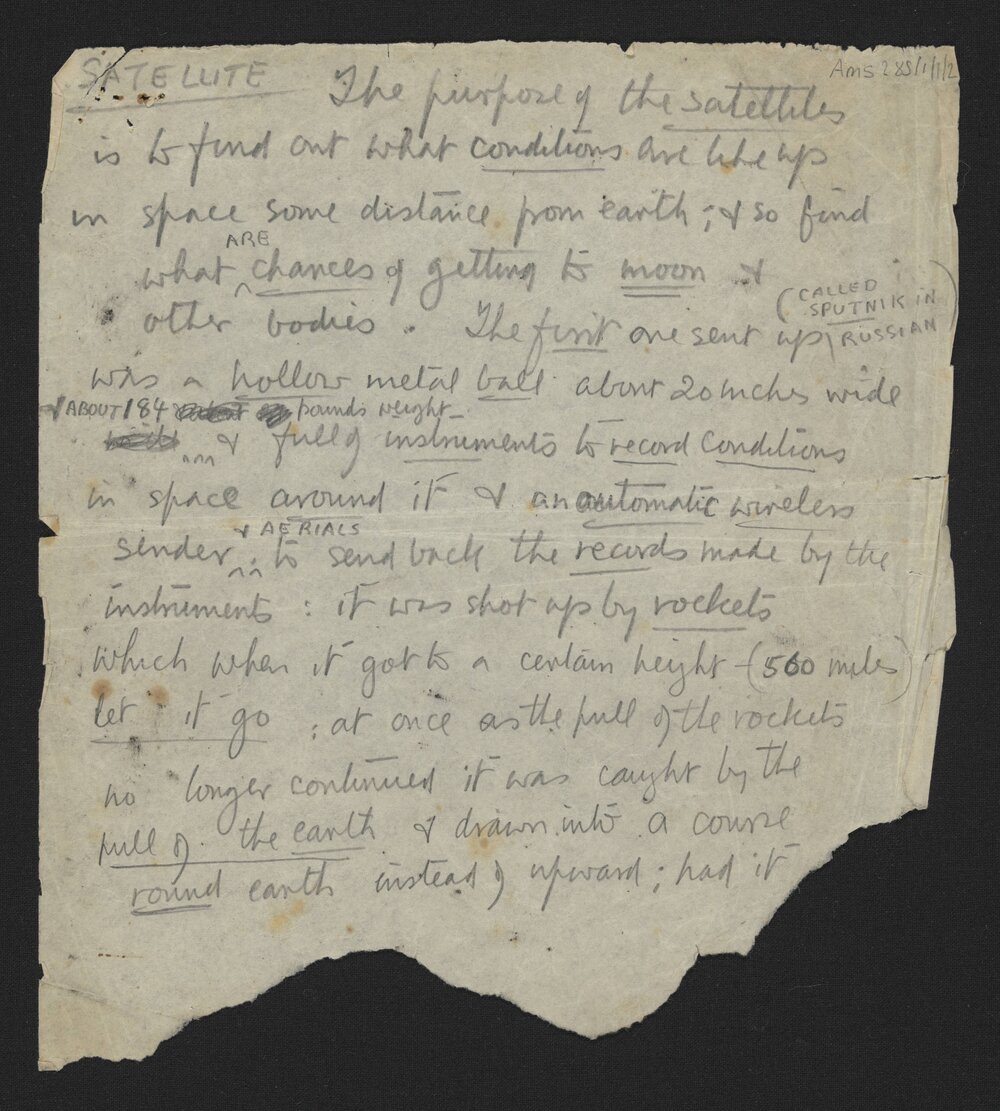 SATELLITE The purpose of the satettiles
Ams 285/1/1/2
is to find out what conditions are like up
in space some distance from earth; & so find
ARE
what chances of getting to moon &
other bodies. The first one sent up (CALLED SPUTNIK IN RUSSIAN)
was a hollow metal ball about 20 inches wide
& ABOUT 184 pounds weight
& full of instruments to record conditions
in space around it & an automatic wireless
& AERIALS
sender; to send back the records made by the
instruments: it was shot up by rockets
which when it got to a certain height (560 miles)
let it go; at once as the pull of the rockets
no longer continued it was caught by the
pull of the earth & drawn into a course
round earth instead of upward; had it